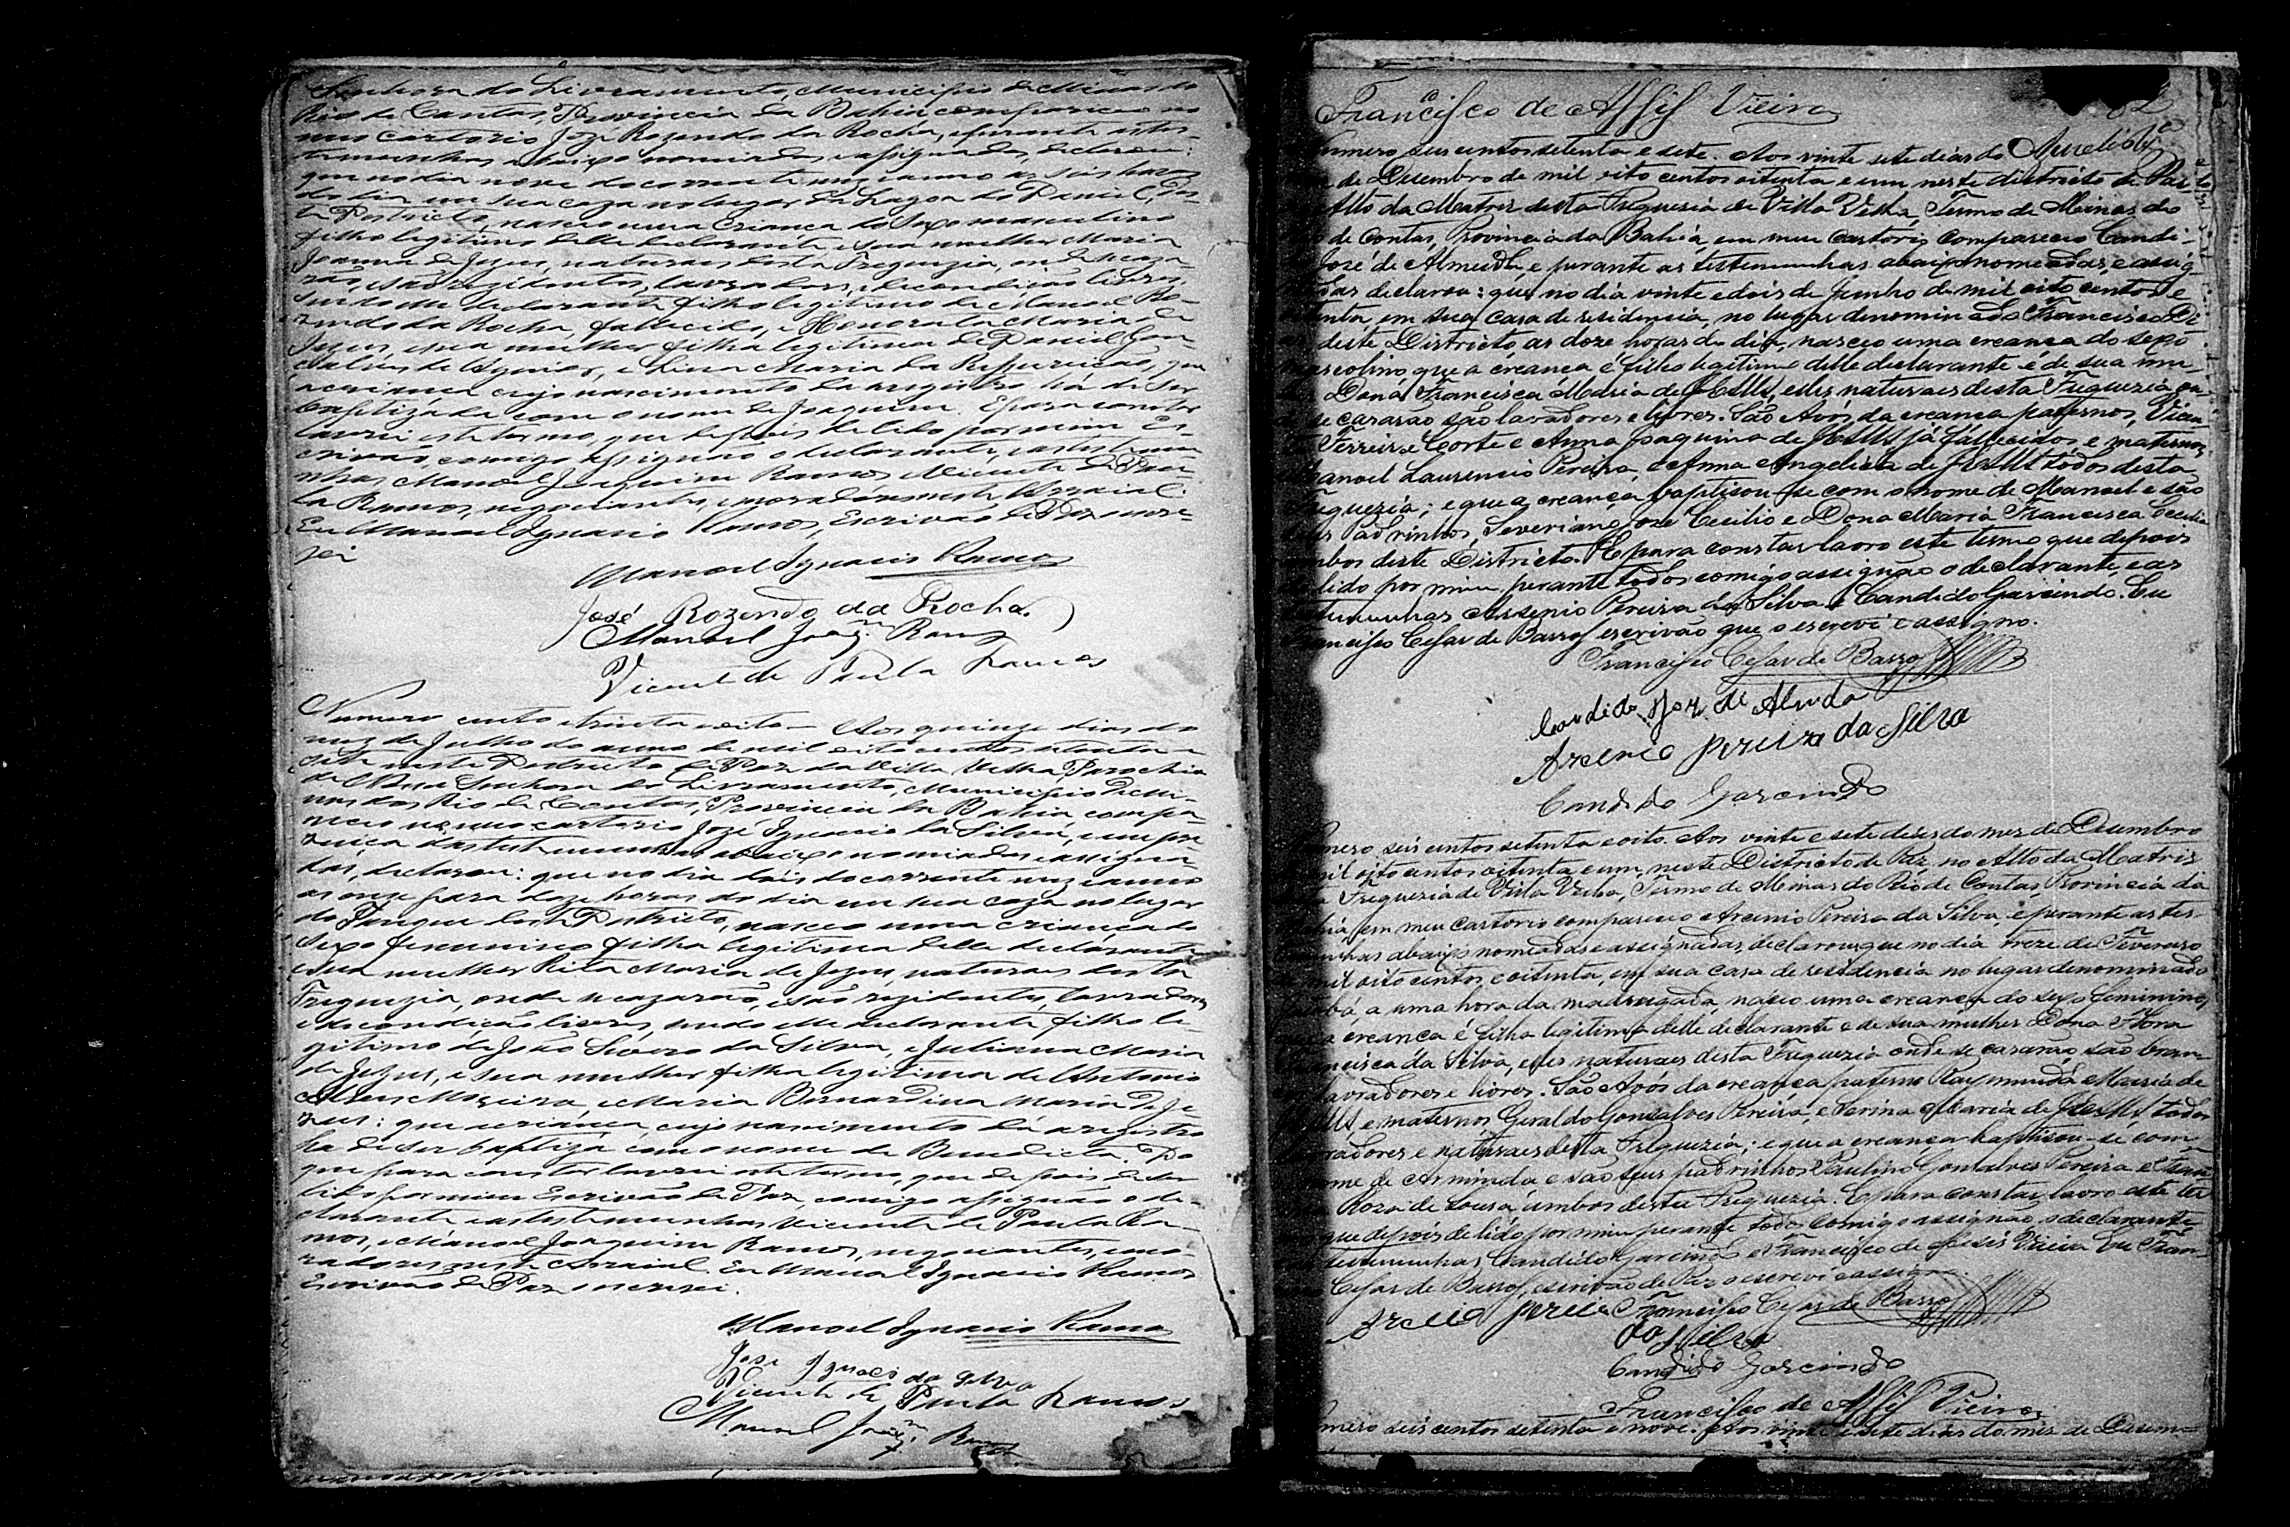 Senhora do Livramento, Municipio de Minas do
Rio de Contas, Provincia da Bahia compareceo no
meu cartorio José Rozendo da Rocha, e perante as tes-
temunhas abaixo nomeadas e assignadas, declarou:
que no dia nove do corrente mez e anno as seis horas
do dia em sua caza no lugar da Lagoa do Daniel, des-
te Destricto, nasceo uma criança do sexo masculino
filho legitimo delle declarante e sua mulher Maria
Joanna de Jezus, naturaes desta Freguezia, onde se caza-
rão, e são rezidentes, lavradores, e de condição livres,
sendo elle declarante filho legitimo de Manoel Ro-
zendo da Rocha, fallecido, e Honorata Maria de
Jezus, e sua mulher filha legitima de Daniel Gon-
çalves de Aguiar, e Lina Maria da Purificação, que
a criança cujo nascimento da aregistro há de ser
baptizada com o nome de Joaquim. E para constar
lavrei este termo, que depois de lido por mim Es-
crivão, comigo assignão o declarante, e as testemu-
nhas Manoel Joaquim Ramos, e Vicente de Pau-
la Ramos, negociantes, e moradores neste Arraial.
Eu Manoel Ignacio Ramos, Escrivão de Paz o escre-
vi
Manoel Ignacio Ramos
José Rozendo da Rocha
Manoel Joaqm. Ramos
Vicente de Paula Ramos
Numero cento e trinta e oito - Aos quinze dias do
mez de Julho do anno de mil oito centos setenta e
sete neste Destricto de Paz da Villa Velha, Parochia
de Nossa Senhora do Livramento, Municipio de Mi-
nas do Rio de Contas, Provincia da Bahia compa-
receo no meu cartorio José Ignacio da Silva, e em pre-
zença das testemunhas abaixo nomiadas e assigna-
das, declarou: que no dia dois do corrente mez e anno
as onze para doze horas do dia em sua caza no lugar
do Tanque deste Destricto, nasceo uma criança do
sexo femenino filha legitima delle declarante
e sua mulher Rita Maria de Jezus, naturaes desta
Freguezia, onde se cazarão, e são rezidentes, lavradores
e de condição livres, sendo elle declarante filho le-
gitimo de João Severo da Silva, e Juliana Maria
de Jezus, e sua mulher filha legitima de Antonio
Alves Moreira, e Maria Bernardina Maria de Je-
zus: que a criança, cujo nascimento da aregistro
ha de ser baptiza com o nome de Benedicta. Do
que para constar lavrei este termo, que depois de ser
lido por mim Escrivão de Paz, comigo assignão o de-
clarante e as testemunhas Vicente de Paula Ra-
mos, e Manoel Joaquim Ramos, negociantes, e mo-
radores neste Arraial. Eu Manoel Ignacio Ramos
Escrivão de Paz o escrevi.
Manoel Ignacio Ramos
Jose Ignacio da Silva
Vicente de Paula Ramos
Manoel Joaqm. Ramos
Francisco de Assis Vieira
Numero seis centos setenta e sete. Aos vinte sete dias do
de Desembro de mil oito centos oitenta e um neste districto de Paz
Alto da Matriz desta Freguezia de Villa Velha, Termo de Minas do
de Contas, Provincia da Bahia, em meu cartorio compareceo Candi-
José de Almeida, e perante as testemunhas abaixo nomeadas, e assig-
nadas declarou: que no dia vinte e dois de Junho de mil oito centos e
em sua casa de residencia, no lugar denominado Francisco Di
deste Districto, as doze horas do dia, nasceo uma creança do sexo
mascolino que a creança é filho legitimo delle declarante e de sua mu-
Dona Francisca Maria de Jesus, elles naturaes desta Freguezia on-
se casarão são lavradores e livres. São Avós da creança paternos, Vicen-
Ferreira Corte e Anna Joaquina de Jesus já fallecidos e maternos,
Manoel Laurencio Pereira, e Anna Angelica de Jesus todos desta
Freguezia; e que a creança baptisou-se com o nome de Manoel e são
seus Padrinhos, Severiano José Cecilio e Dona Maria Francisca Cecilia
ambos deste Districto. E para constar lavro este termo que depois
lido por mim perante todos comigo assignão o declarante, e as
testemunhas Arsenio Pereira da Silva e Candido Garcindo. Eu
Francisco Cesar de Barros escrivão que o escrevi e assigno.
Francisco Cesar de Barros
Candido Joz de Almeda
Arcenio pereira da Silva
Candido Garcindo
Numero seis centos setenta e oito. Aos vinte e sete dias do mes de Desembro
mil oito centos oitenta e um, neste Districto de Paz no Alto da Matriz
Freguezia de Villa Velha, Termo de Minas do Rio de Contas, Provincia da
Bahia, em meu cartorio compareceo Arcenio Pereira da Silva, e perante as tes-
temunhas abaixo nomeadas e assignadas, declarou que no dia treze de Fevereiro
mil oito centos e oitenta, em sua casa de residencia no lugar denominado
a uma hora da madrugada, nasceo uma creança do sexo feminino,
a creança é filha legitima delle declarante e de sua mulher Dona Flora
Francisca da Silva, elles naturaes desta Freguezia onde se casarão são bran-
lavradores e livres. São Avós da creança paterno Raymunda Maria de
Jesus, e maternos Geraldo Gonsalves Pereira, e Serina Maria de Jesus, todos
lavradores e naturaes desta Freguezia; e que a creança baptisou-se com
nome de Arminda e são seus padrinhos Paulino Gonsalves Pereira e
Roza de Sousa, ambos desta Freguezia. E para constar lavro este ter-
que depois de lido por mim perante todos comigo assignão o declarante
testemunhas Candido Garcindo e Francisco de Assis Vieira. Eu Fran-
Cesar de Barros, escrivão de Paz o escrevi e assigno.
Francisco Cesar de Barros
Arcenio pereira
da Silva
Candido Garcindo
Francisco de Assis Vieira
Numero seis centos setenta e nove. Aos vinte e sete dias do mes de Desem-